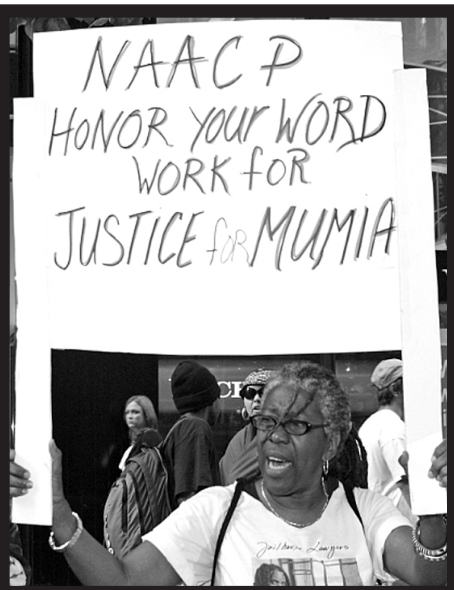 NAACP
HONOR YOUR WORD
WORK foR
JUSTICE foR MUMIA
Jailhouse Lawyers